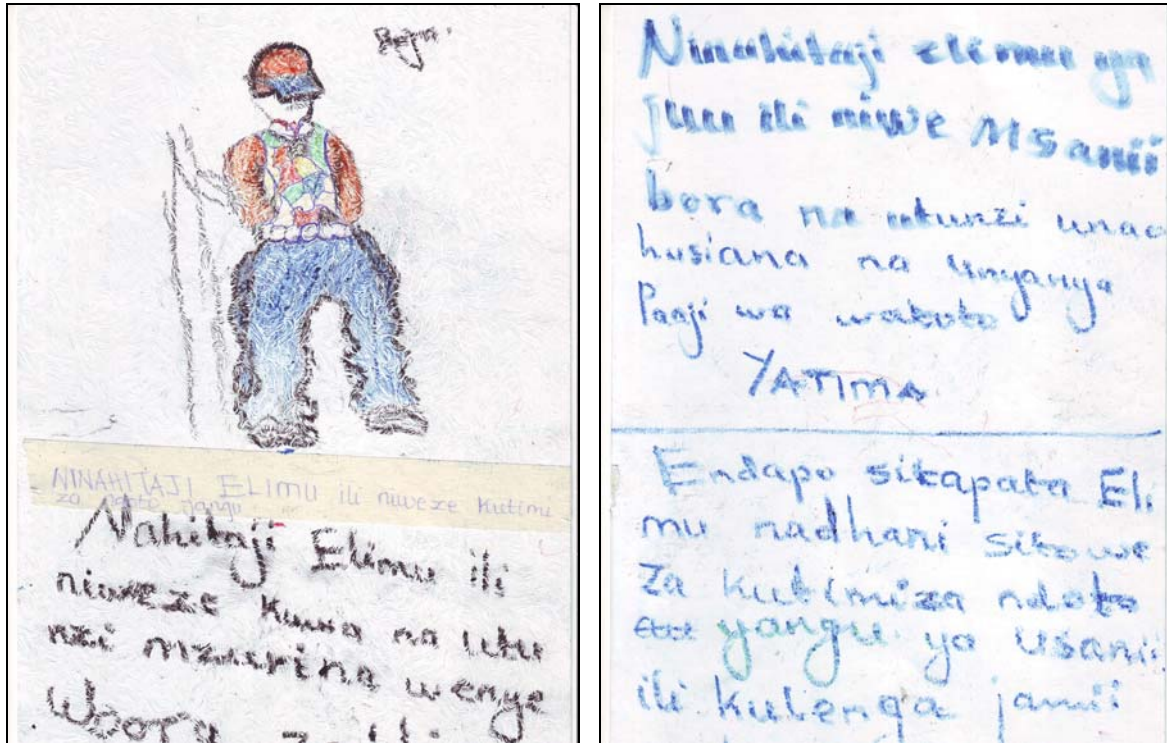 NINAHITAJI ELIMU ili niweze kutimi
za ndoto yangu
Nahitaji Elimu ili
niweze kuwa na utu
nzi mzurina wenye
Ubora
Ninahitaji elimu ya
juu ili niwe Msanii
bora na utunzi unao
husiana na unyanya
Paaji wa watoto
YATIMA
Endapo sitapata Eli
mu nadhani sitowe
za kutimiza ndoto
yangu ya Usanii
ili kulenga jamii